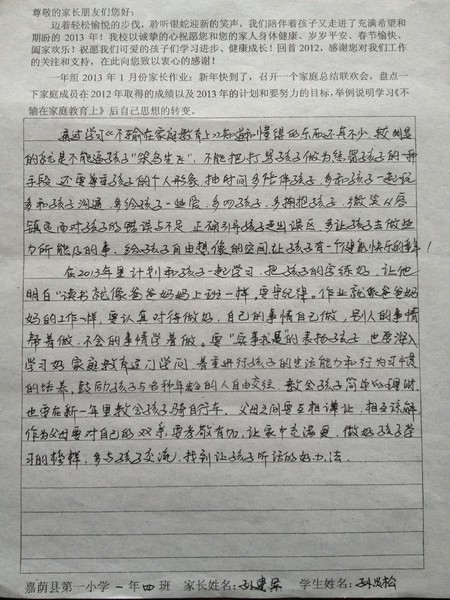 尊敬的家长朋友们您好:
迈着轻松愉悦的步伐，聆听银蛇迎新的笑声，我们陪伴着孩子又走进了充满希望和
期盼的 2013 年！我校以诚挚的心祝愿您和您的家人身体健康、岁岁平安、春节愉快、
阖家欢乐！祝愿我们可爱的孩子们学习进步、健康成长！回首 2012，感谢您对我们工作
的关注和支持，在此向您致以衷心的感谢！
一年组 2013 年 1 月份家长作业：新年快到了，召开一个家庭总结联欢会，盘点一
下家庭成员在 2012 年取得的成绩以及 2013 年的计划和要努力的目标，举例说明学习《不
输在家庭教育上》后自己思想的转变。
通过学习《不输在家庭教育上》知道和懂得的东西还真不少，较明显
的就是不能逼孩子"笨鸟先飞"，不能把打骂孩子做为练习孩子的一种
手段，还要尊重孩子的个人形象，抽时间多陪伴孩子，多和孩子一起玩
多和孩子沟通，多给孩子一些爱，多叫孩子，多拥抱孩子，微笑从容
镇定面对孩子的错误与不足，正确引导孩子走出误区，多让孩子去做些
力所能及的事，给孩子自由想像的空间，让孩子有一个健康快乐的童年！
在2013年里计划和孩子一起学习，把孩子的字练好，让他
明白"读书就像爸爸妈妈上班一样，要守纪律。作业就像爸爸妈
妈的工作一样，要认真对待做好，自己的事情自己做，别人的事情
帮着做，不会的事情学着做。要"实事求是"的表扬孩子，也要深入
学习好家庭教育这门学问，着重进行孩子的生活能力和行为习惯
的培养，鼓励孩子与各种年龄的人自由交往，教会孩子简单的理财，
也要在新一年里教会孩子骑自行车，父母之间要互相谦让，相互谅解
作为父母要对自己的双亲要孝敬有加，让家中充满爱，做好孩子学
习的榜样，多与孩子交流，找到让孩子听话的好办法。
嘉荫县第一小学一年四班 家长姓名: 孙建 学生姓名: 孙 松